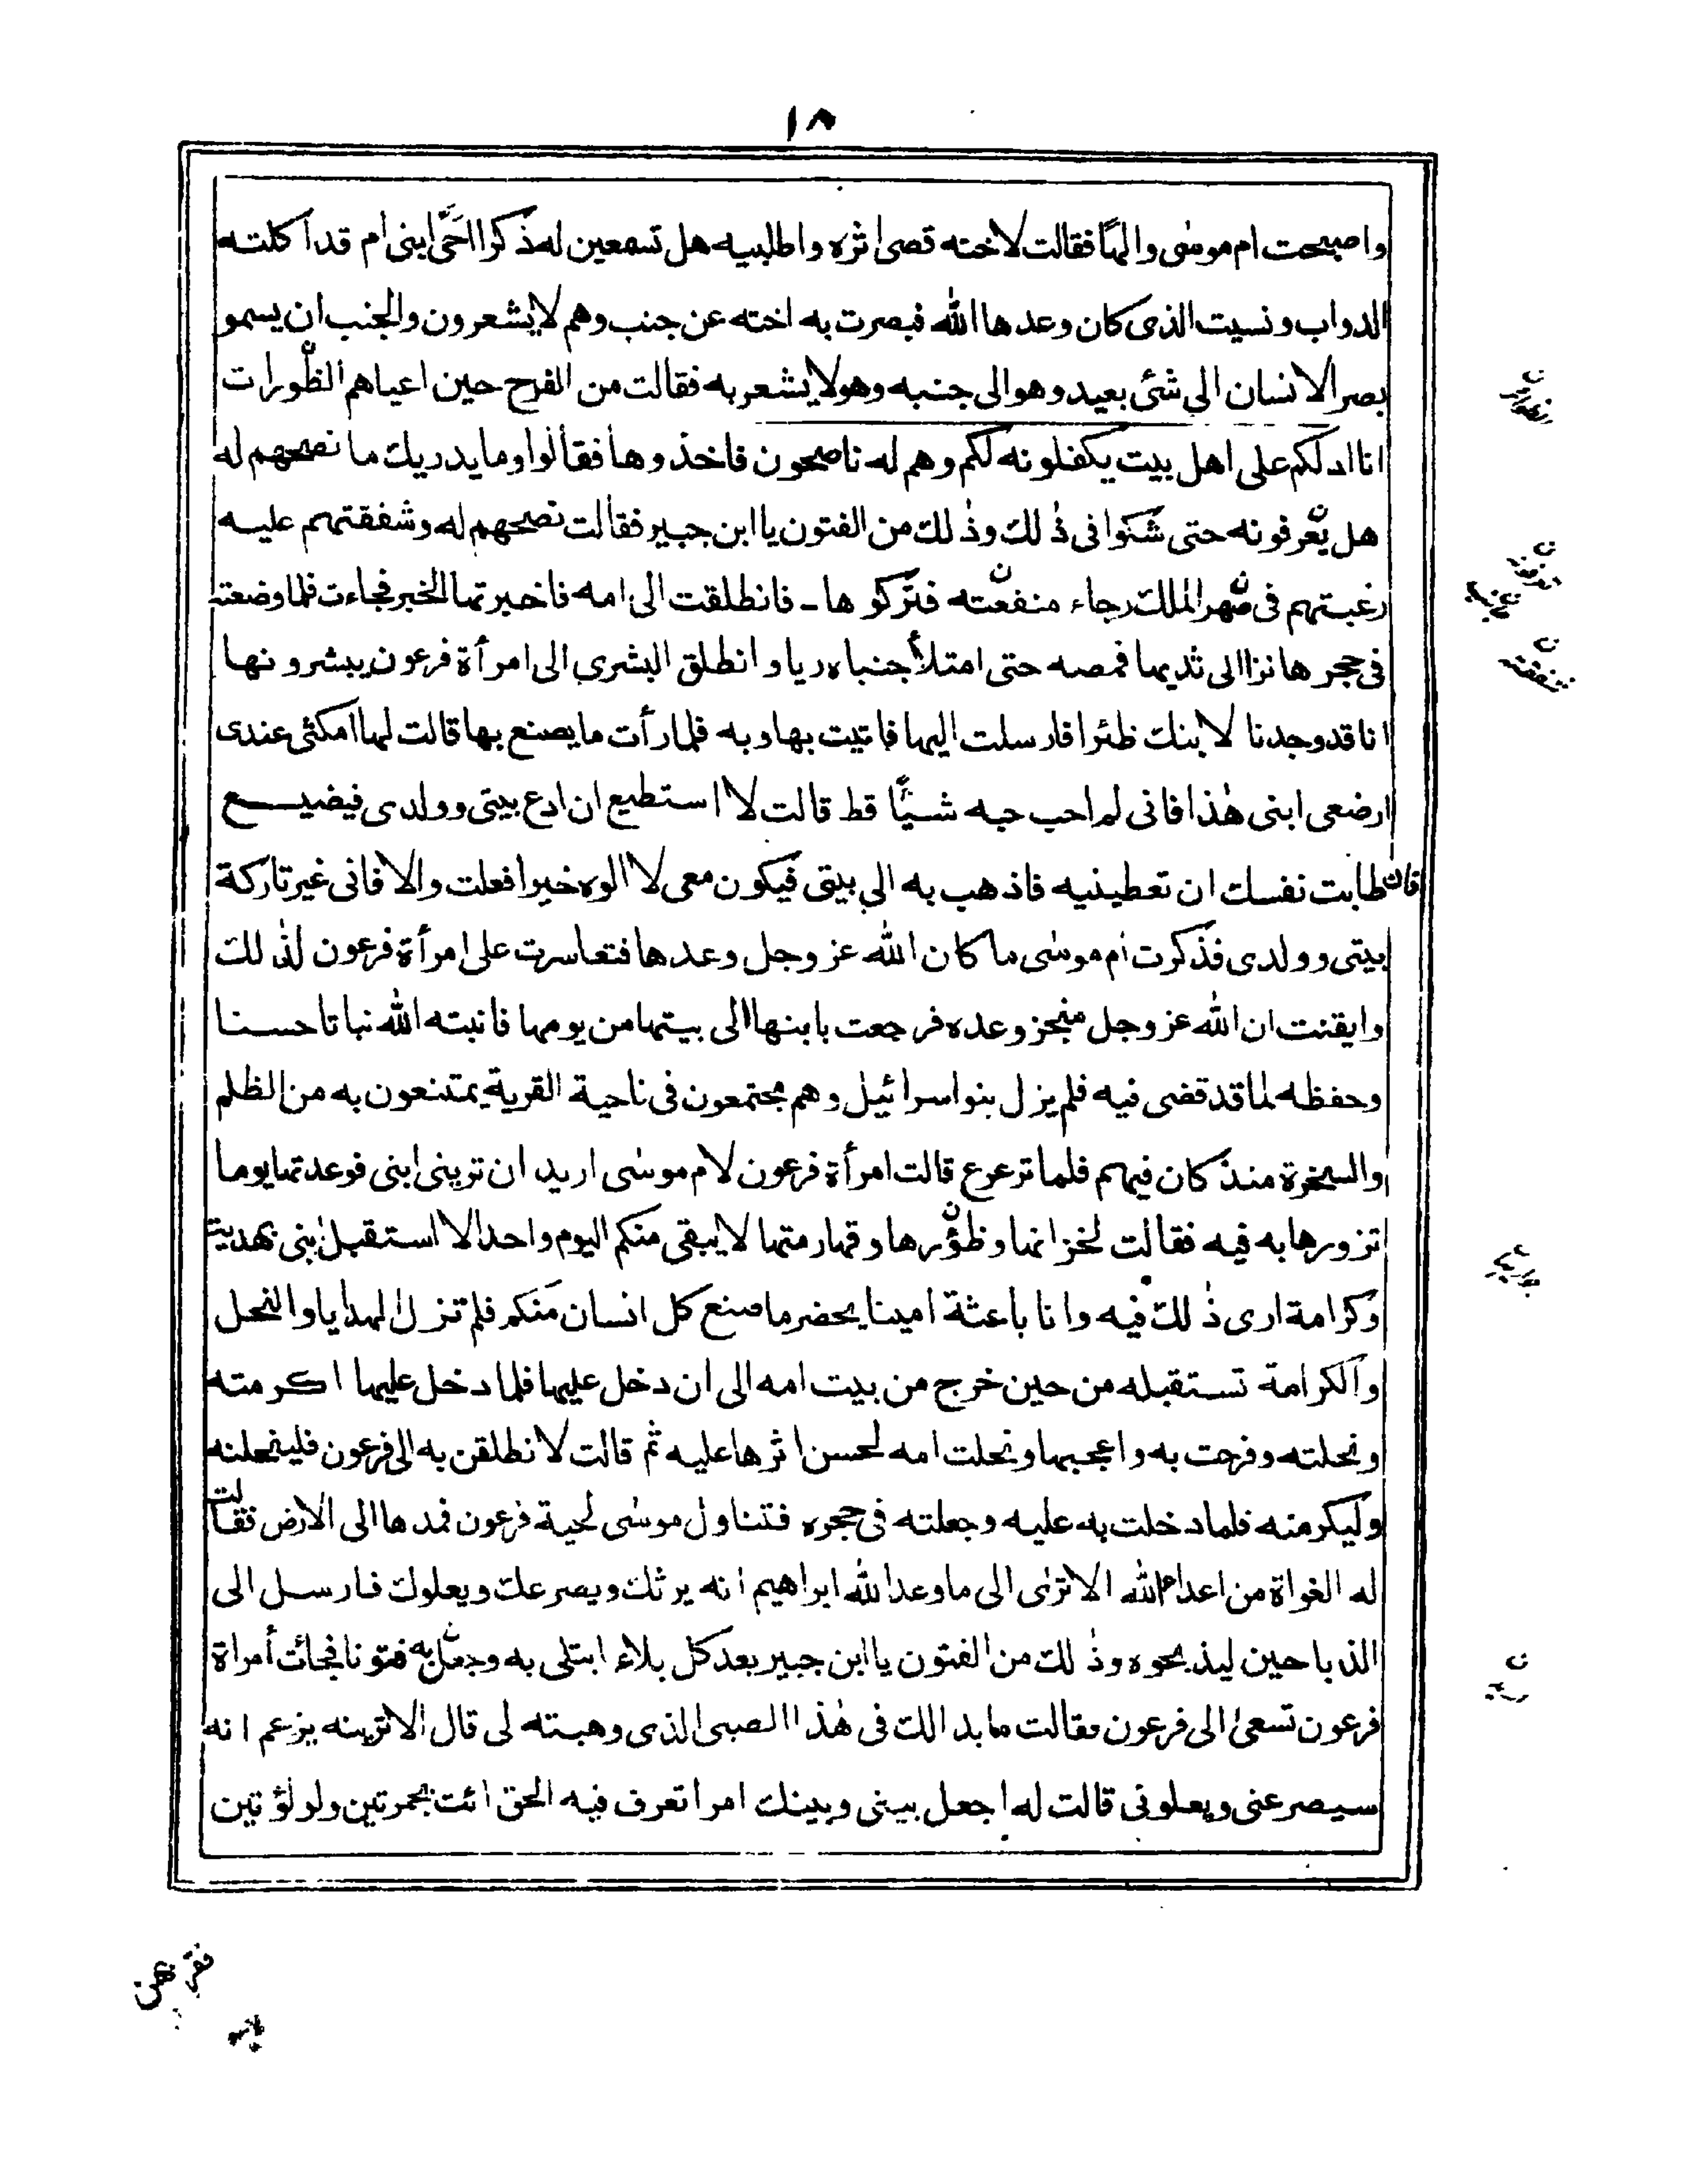 ١٨
واصبحت ام موسٰى والهًا فقالت لاخته قصى اثره واطلبيه هل تسمعين له ذكرا احَىٌّ ابنى ام قد اكلته
الدواب ونسيت الذى كان وعدها اللّٰه فبصرت به اخته عن جنب وهم لايشعرون والجنب ان يسمو
بصر الانسان الى شئى بعيد وهو الى جنبه وهو لايشعر به فقالت من الفرح حين اعياهم الظٔورات
انا ادلكم على اهل بيت يكفلونه لكم وهم له ناصحون فاخذوها فقالوا وما يدريك ما نصحهم له
هل يعرفونه حتى شكوا فى ذٰلك وذٰلك من الفتون يا ابن جبير فقالت نصحهم له وشفقتهم عليه
رغبتهم فى صهر الملك رجاء منفعته فتركوها ـ فانطلقت الى امه فاخبرتها الخبر فجاءت فلما وضعته
فى حجرها نزا الى ثديها فمصه حتى امتلأ جنباه ريا وانطلق البشرى الى امرأة فرعون يبشرونها
انا قد وجدنا لابنك ظئرا فارسلت اليها فاتيت بها وبه فلما رأت ما يصنع بها قالت لها امكثى عندى
ارضعى ابنى هٰذا فانى لم احب حبه شيئًا قط قالت لا استطيع ان ادع بيتى وولدى فيضيع
فان طابت نفسك ان تعطينيه فاذهب به الى بيتى فيكون معى لا الوه خيرا فعلت والا فانى غير تاركة
بيتى وولدى فذكرت ام موسٰى ما كان اللّٰه عز وجل وعدها فتعاسرت على امرأة فرعون لذٰلك
وايقنت ان اللّٰه عز وجل منجز وعده فرجعت بابنها الى بيتها من يومها فانبته اللّٰه نباتا حسنا
وحفظه لما قد قضى فيه فلم يزل بنو اسرائيل وهم مجتمعون فى ناحية القرية يمتنعون به من الظلم
والسخرة منذ كان فيهم فلما ترعرع قالت امرأة فرعون لام موسٰى اريد ان ترينى ابنى فوعدتها يوما
تزورها به فيه فقالت لخزانها وظؤرها وقهارمتها لايبقى منكم اليوم واحد الا استقبل ابنى بهدية
وكرامة ارى ذٰلك فيه وانا باعثة امينا يحضر ما صنع كل انسان منكم فلم تزل الهدايا والنحل
والكرامة تستقبله من حين خرج من بيت امه الى ان دخل عليها فلما دخل عليها اكرمته
ونحلته وفرحت به واعجبها ونحلت امه لحسن اثرها عليه ثم قالت لانطلقن به الى فرعون فلينحلنه
وليكرمنه فلما دخلت به عليه وجعلته فى حجره فتناول موسٰى لحية فرعون فمدها الى الارض فقالت
له الغواة من اعداء اللّٰه الا ترٰى الى ما وعد اللّٰه ابراهيم انه يرثك ويصرعك ويعلوك فارسل الى
الذباحين ليذبحوه وذٰلك من الفتون يا ابن جبير بعد كل بلاء ابتلى به وجعل به فتونا فجائت أمراة
فرعون تسعىٰ الى فرعون فقالت ما بدالك فى هٰذا الصبى الذى وهبته لى قال الاترينه يزعم انه
سيصرعنى ويعلونى قالت له اجعل بينى وبينك امرا تعرف فيه الحق ائت بجمرتين ولولؤتين